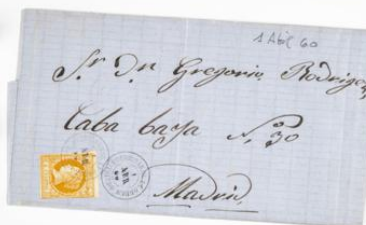 1 Abil 60
Sr. Dn Gregorio Rodrigez
Caba baja N.º 30
Madrid
1
ABR